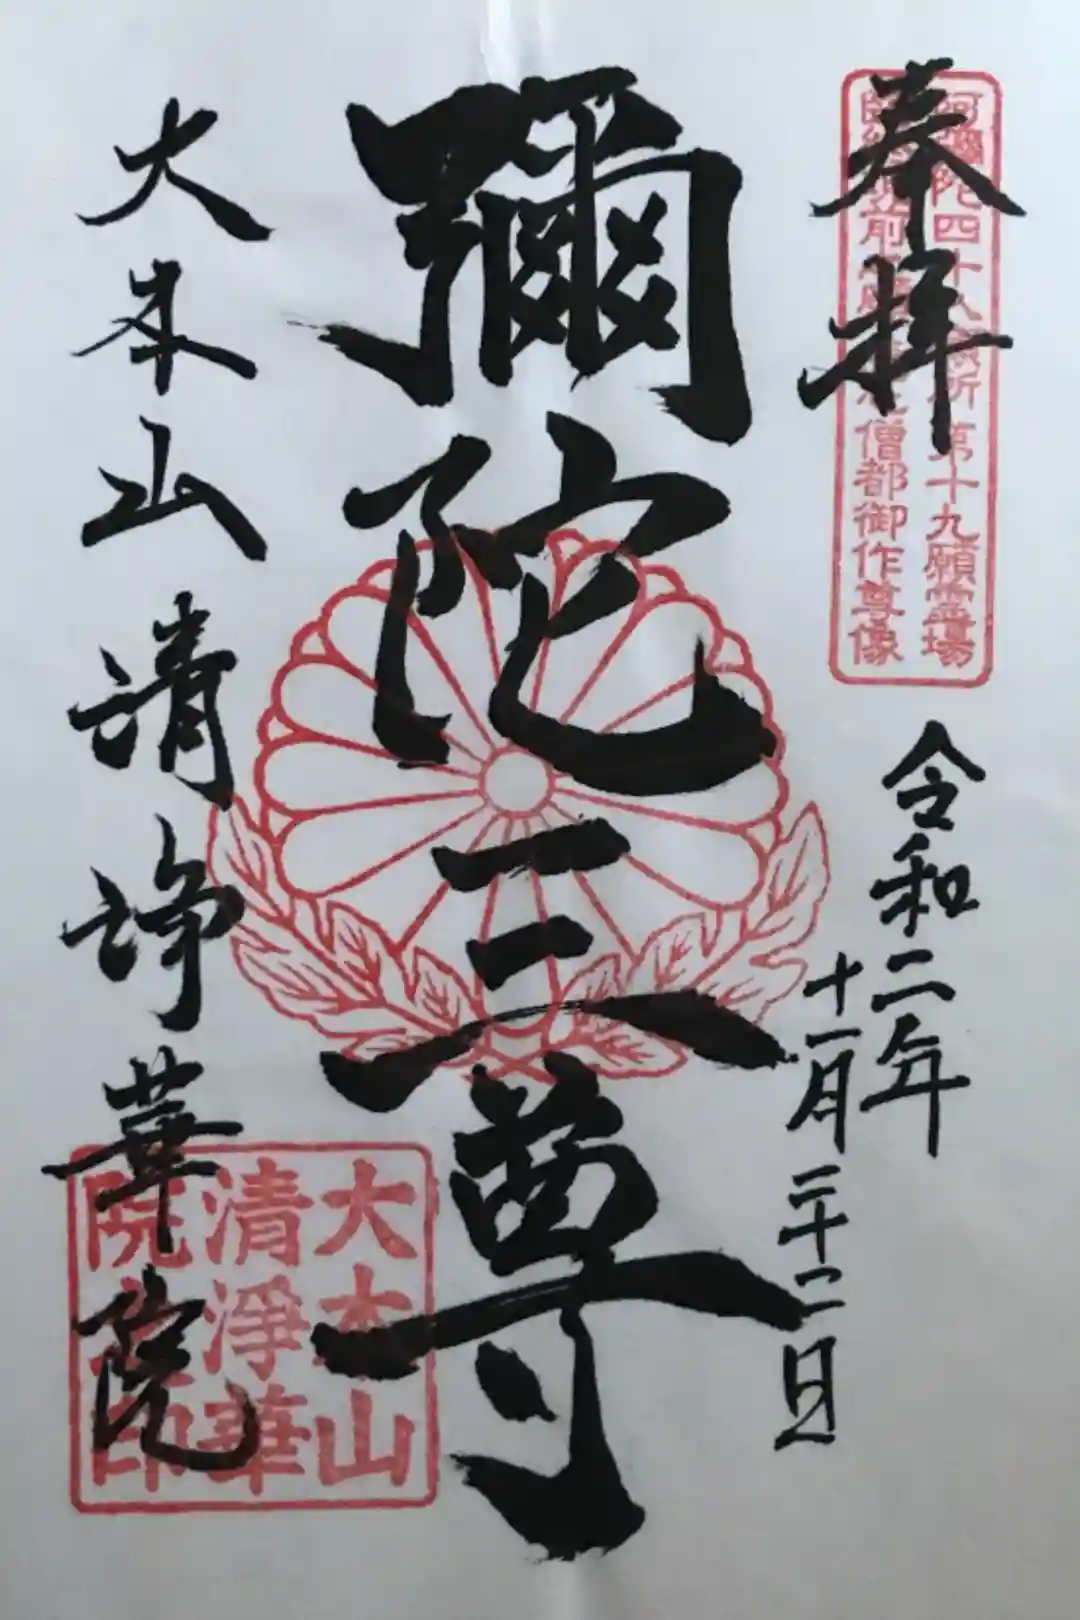 奉拝
阿彌陀四十八願所第十九願霊場
前 僧都御作尊像
令和二年
十一月二十二日
彌陀三尊
大本山清浄華院
大本山
清淨華
院 印